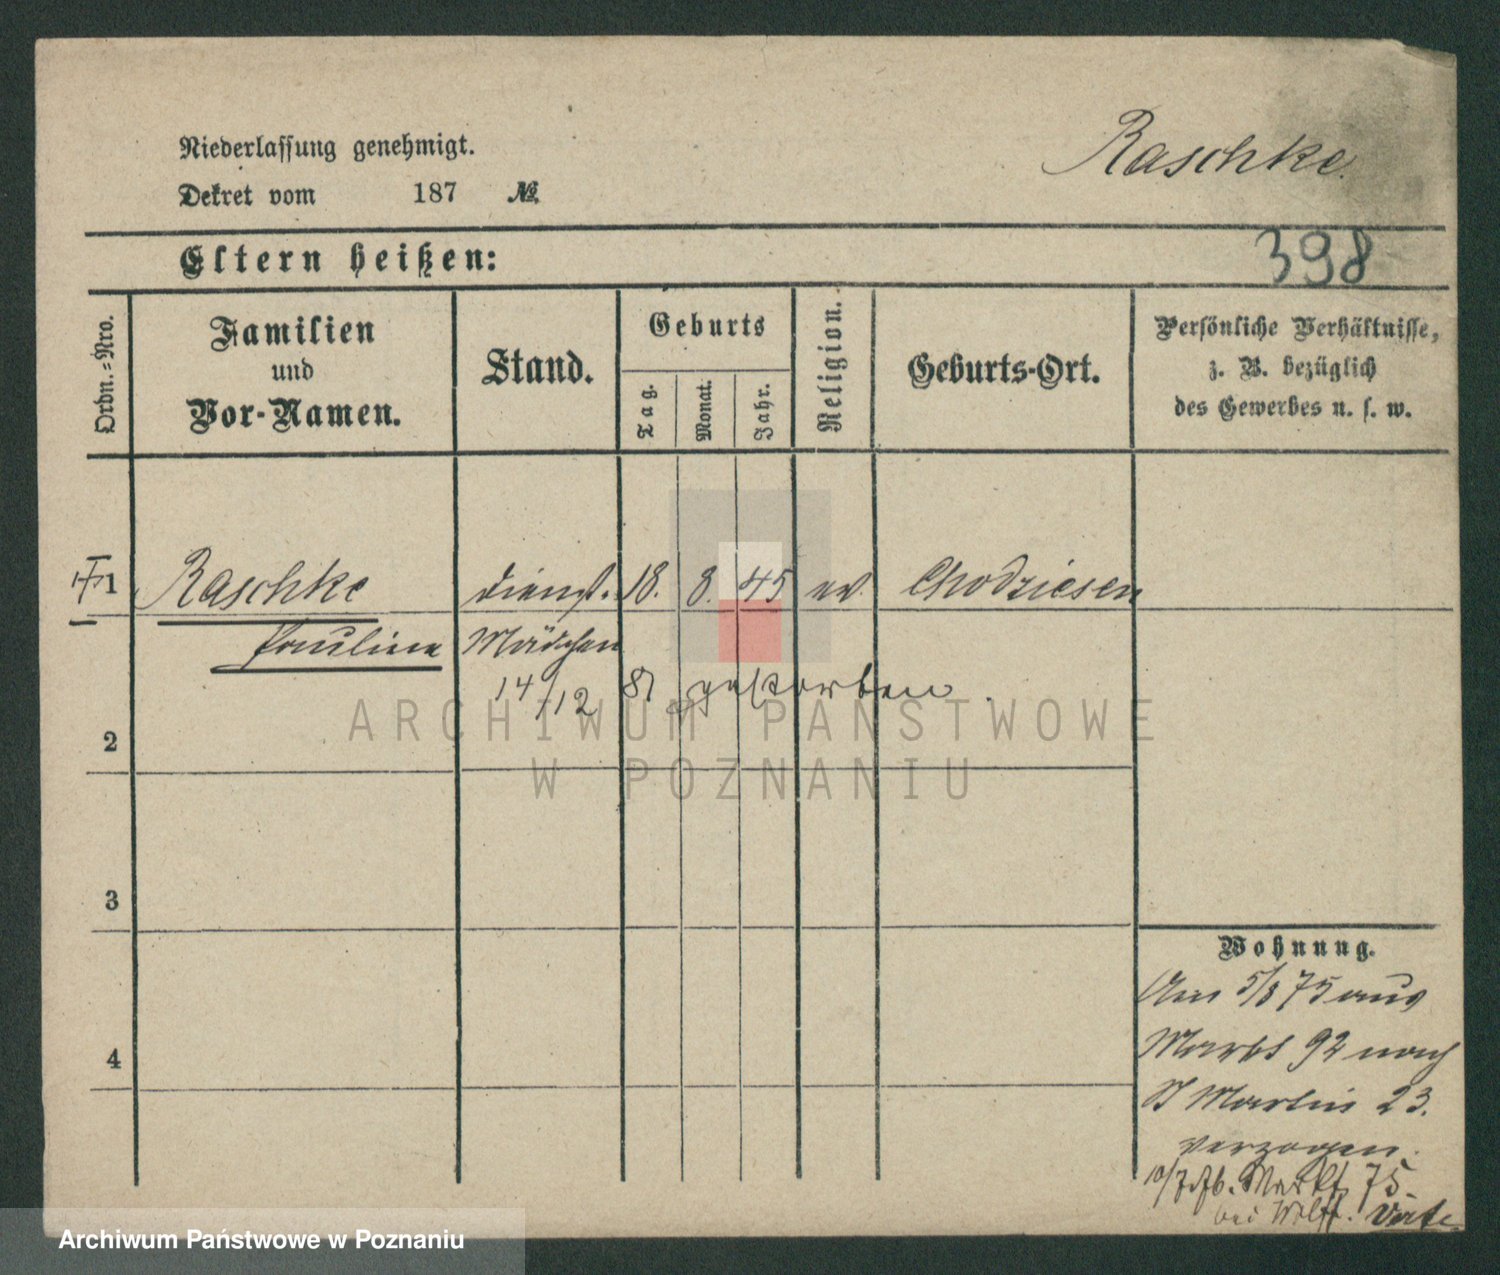 Raschke.
Niederlassung genehmigt.
Dekret vom 187 №
398
Eltern heißen:
Ordn.=Nro.
Familien
und
Vor-Namen.
Stand.
Geburts
Tag.
Monat.
Jahr.
Religion.
Geburts-Ort.
Persönliche Verhältnisse,
z. B. bezüglich
des Gewerbes u. s. w.
1 Raschke Dienst. 18. 8. 45 ev. Chodziesen
Pauline Mädchen
14/12 81 gestorben.
2
3
4
Wohnung.
Am 5/8 75 aus
Markt 92 nach
St Martin 23.
verzogen.
10/7 Markt 75
bei Wolff.
ARCHIWUM PAŃSTWOWE
W POZNANIU
Archiwum Państwowe w Poznaniu